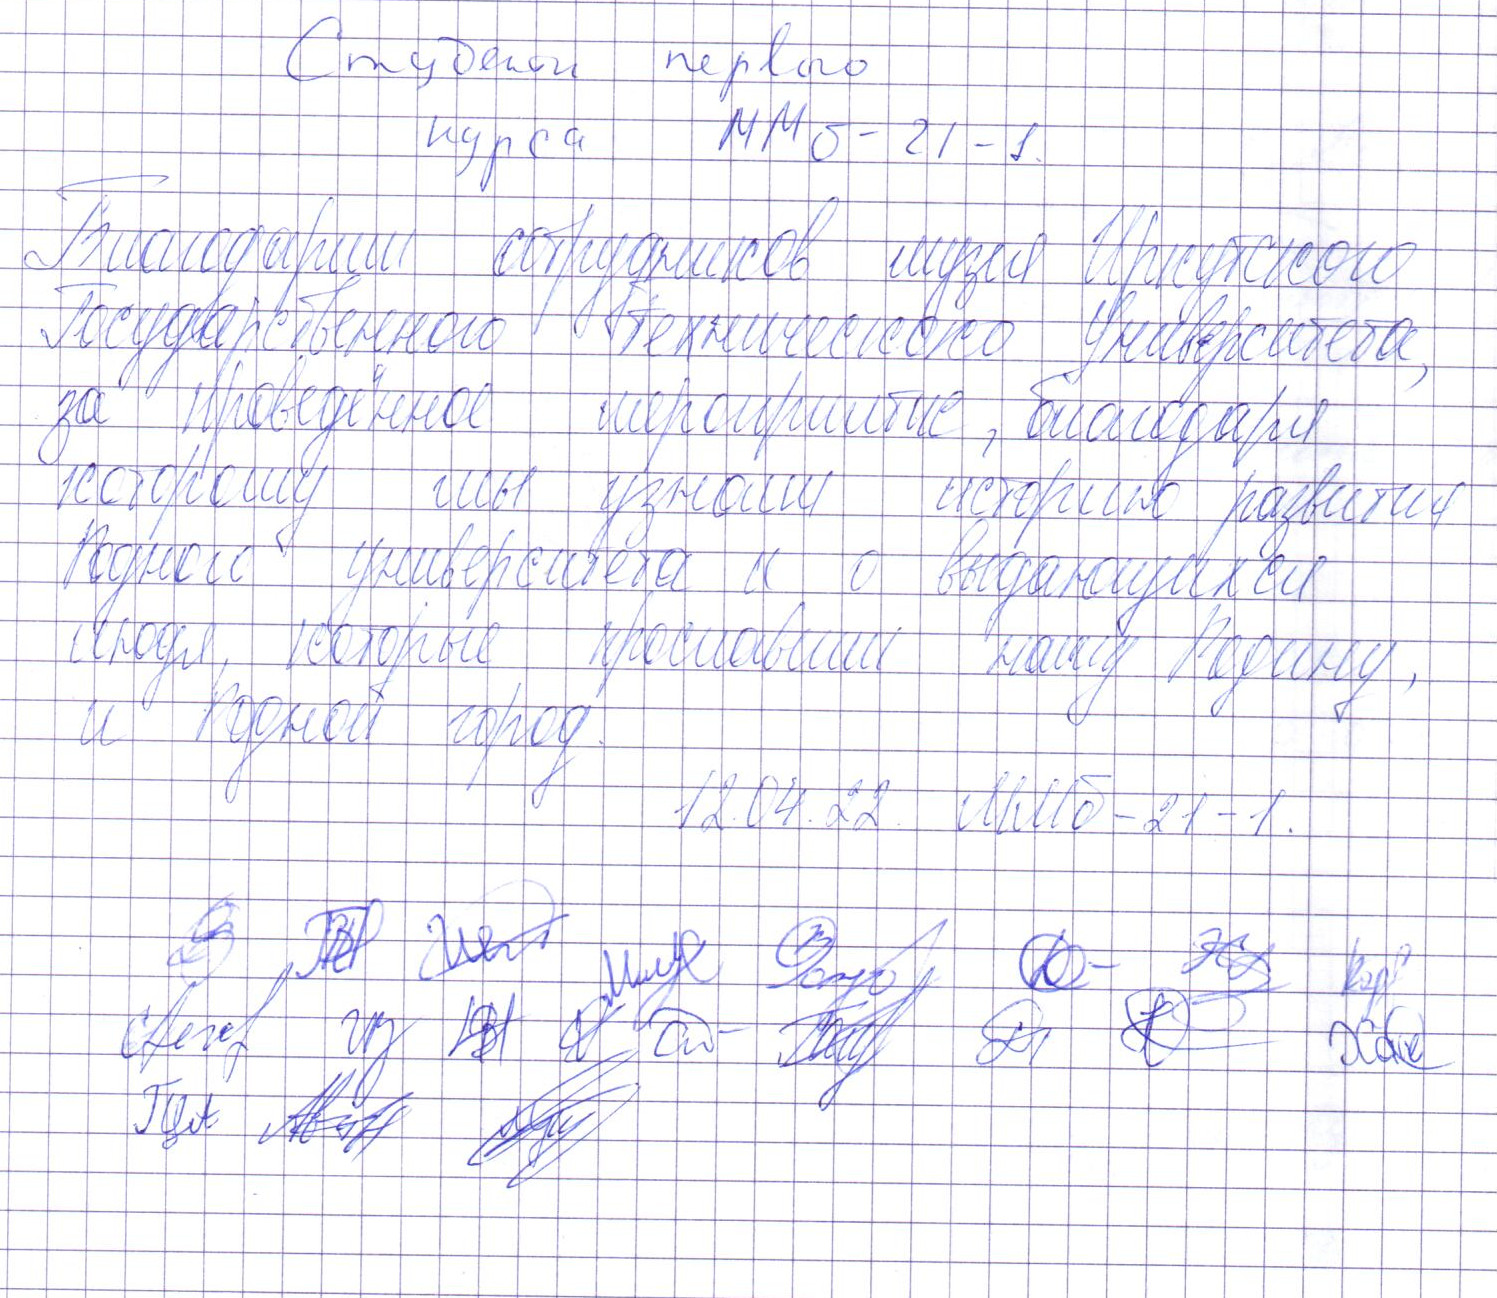 Студенты первого
курса ММб-21-1.
Благодарим сотрудников музея Иркутского
Государственного Технического Университета,
за проведённое мероприятие, благодаря
которому мы узнали историю развития
Родного университета и о выдающихся
людя, которые прославили нашу Родину,
и Родной город.
12.04.22. ММб-21-1.